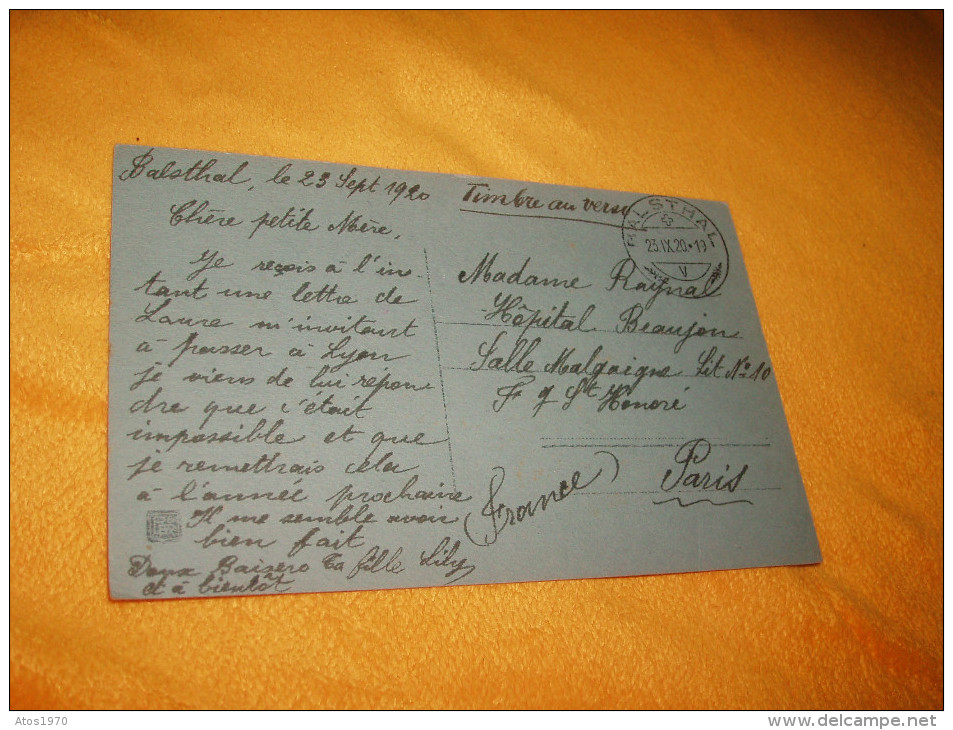 Balsthal, le 23 Sept 1920
Chère petite Mère,
Je reçois à l'ins-
tant une lettre de
Laure m'invitant
à passer à Lyon
je viens de lui répon-
dre que c'était
impossible et que
je remettrais cela
à l'année prochaine
Il me semble avoir
bien fait
Doux Baisers ta fille Lily
et à bientôt
Timbre au verso
BALSTHAL
23.IX.20.19
V
Madame Raynal
Hôpital Beaujon
Salle Malgaigne Lit No 10
Fg St Honoré
Paris
(France)
Atos1970
http://www.delcampe.net